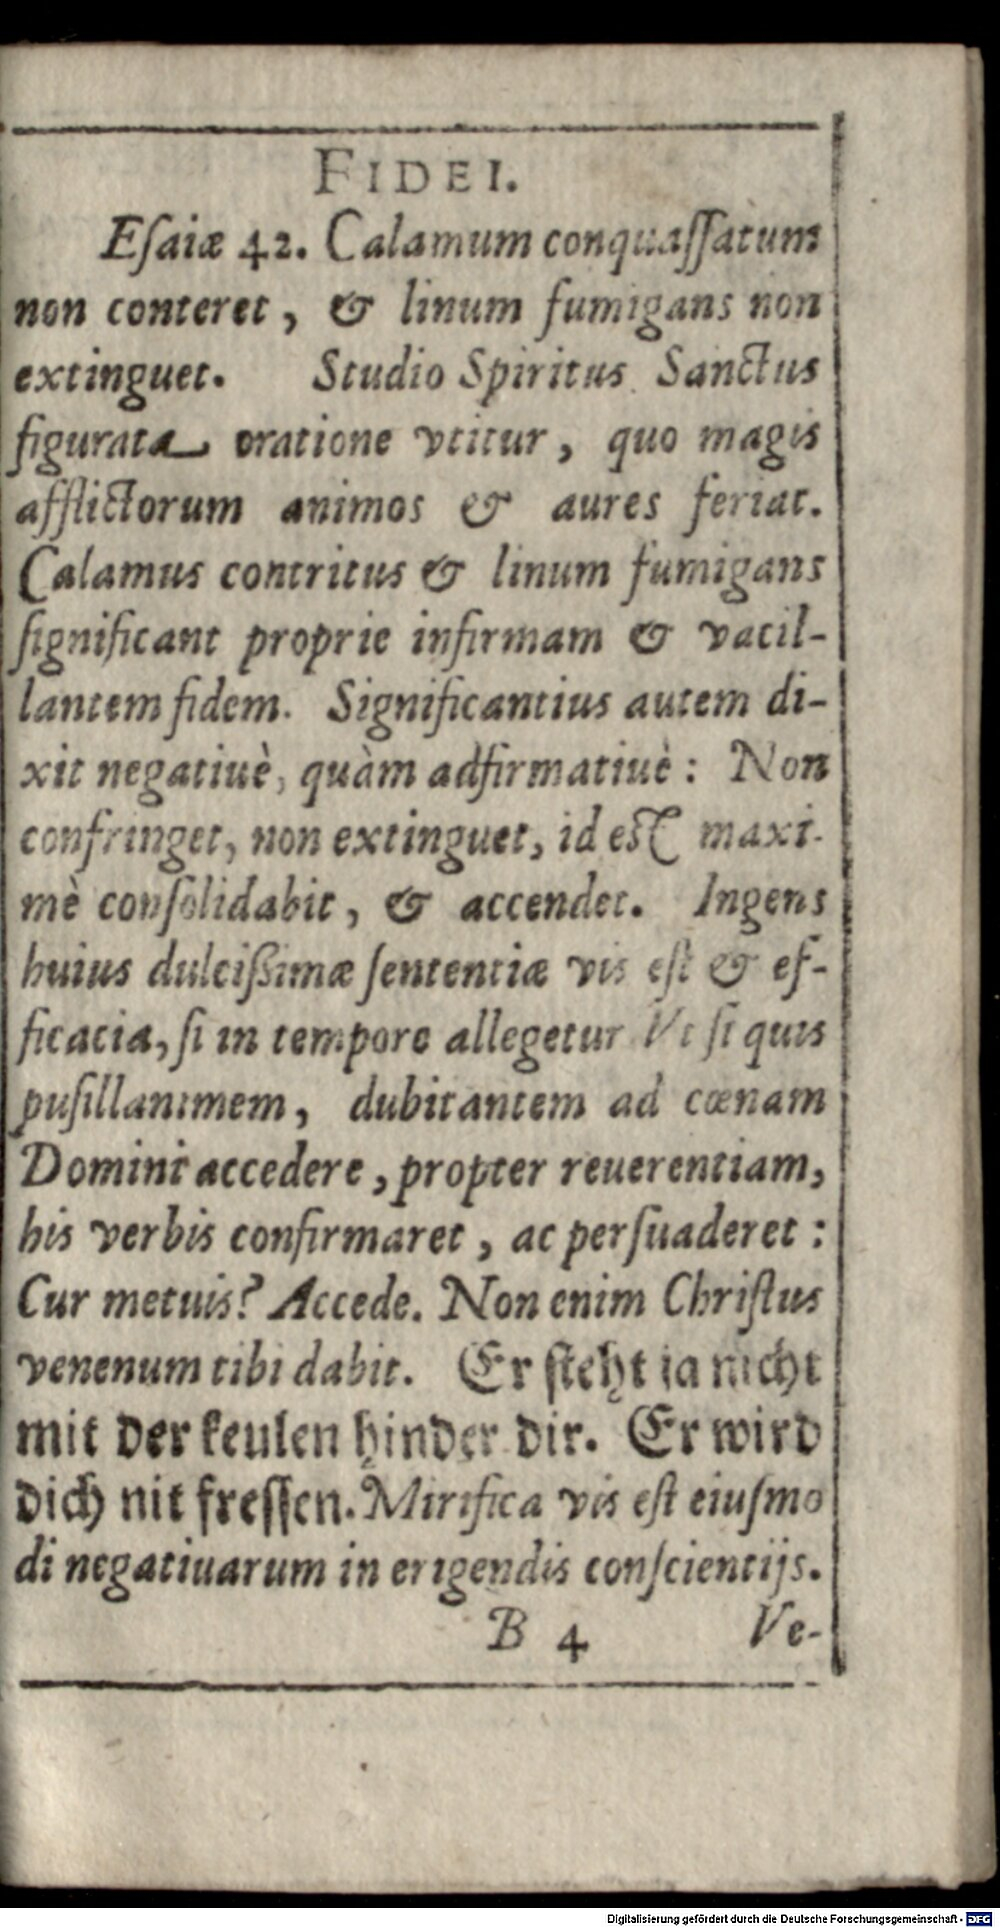 FIDEI.
Eſaiæ 42. Calamum conquaſſatum
non conteret, & linum fumigans non
extinguet. Studio Spiritus Sanctus
figurata oratione vtitur, quo magis
afflictorum animos & aures feriat.
Calamus contritus & linum fumigans
ſignificant proprie infirmam & vacil-
lantem fidem. Significantius autem di-
xit negatiuè, quàm adfirmatiuè: Non
confringet, non extinguet, id eſt maxi-
mè conſolidabit, & accendet. Ingens
huius dulcißimæ ſententiæ vis eſt & ef-
ficacia, ſi in tempore allegetur Vt ſi quis
puſillanimem, dubitantem ad cœnam
Domini accedere, propter reuerentiam,
his verbis confirmaret, ac perſuaderet:
Cur metuis? Accede. Non enim Chriſtus
venenum tibi dabit. Er ſteht ja nicht
mit der keulen hinder dir. Er wird
dich nit freſſen. Mirifica vis eſt eiuſmo
di negatiuarum in erigendis conſcientijs.
B 4 Ve-
Digitalisierung gefördert durch die Deutsche Forschungsgemeinschaft - DFG